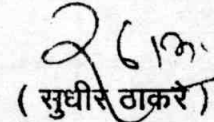 ( सुधीर ठाकरे )